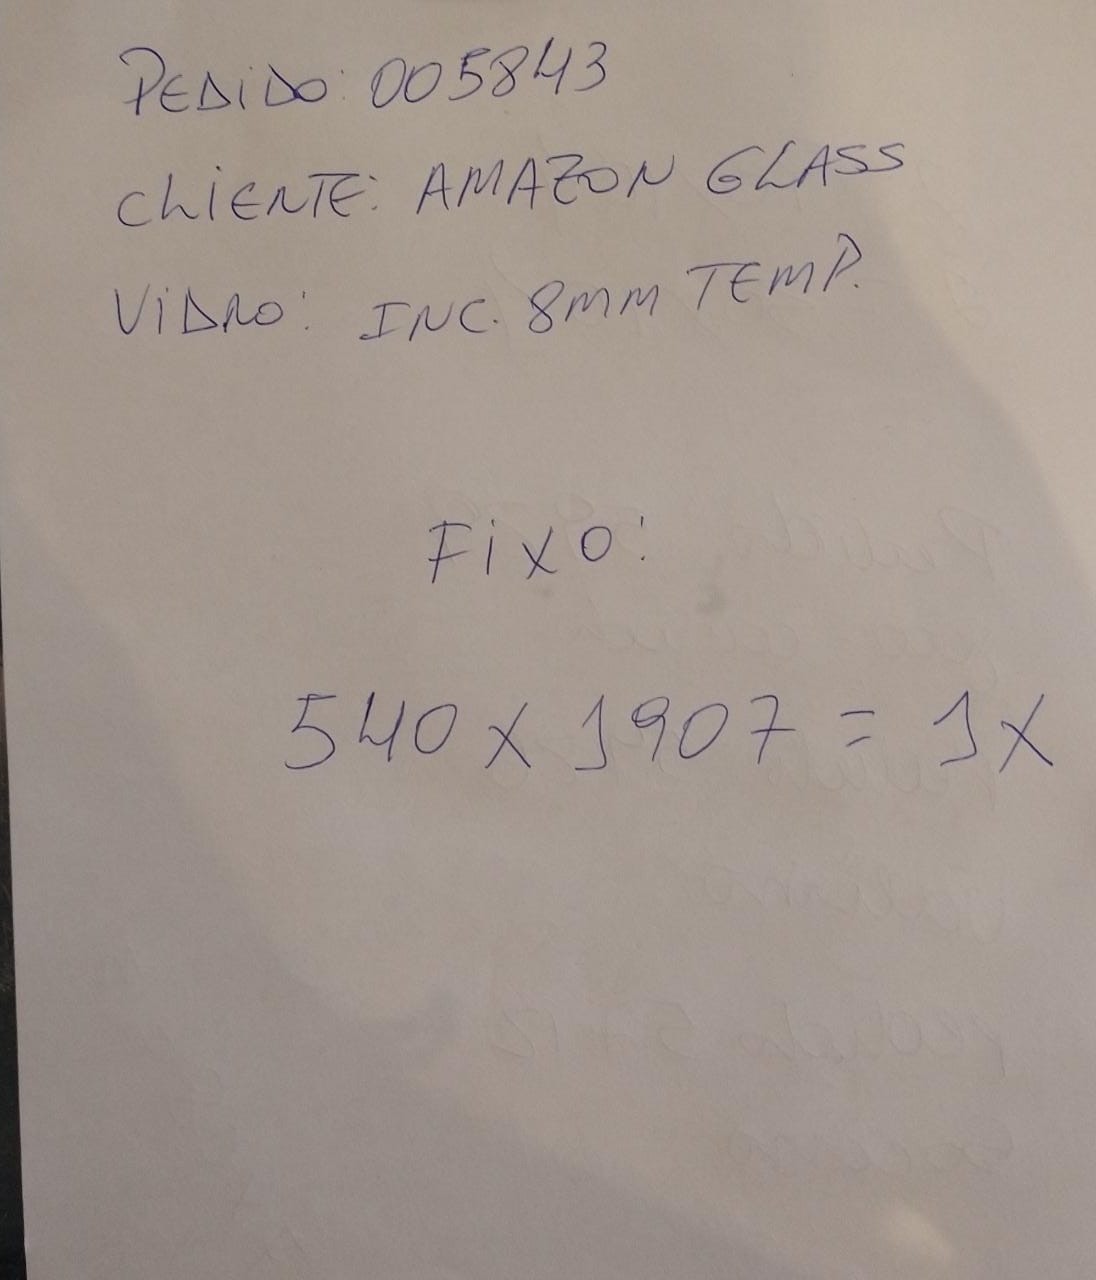 PEDiDO: 005843
CLiENTE: AMAZON GLASS
ViDRO: INC. 8MM TEMP.
FiXO:
540 X 1907 = 1X